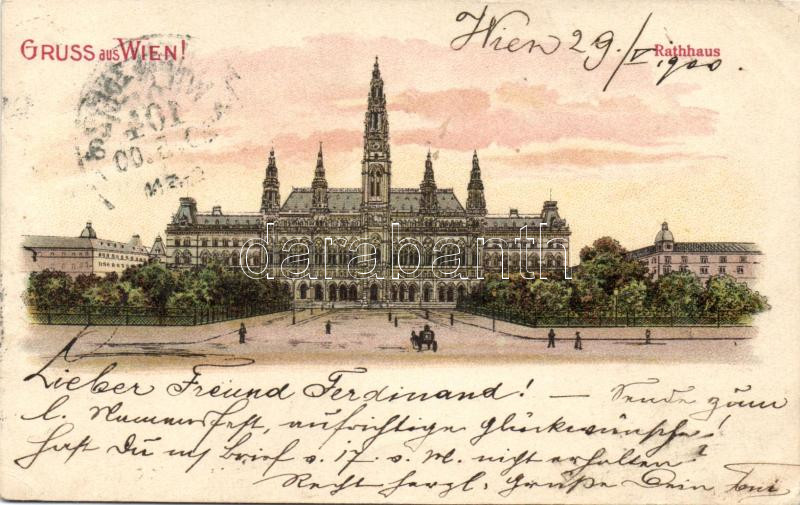 GRUSS aus WIEN!
Rathhaus
Wien 29/V 1900.
darabanth
Lieber Freund Ferdinand! — Sende zum
l. Namensfest, aufrichtige Glückwünsche!
hast Du m Brief v. 17. v. M. nicht erhalten?
Recht herzl. Grüße Dein Toni